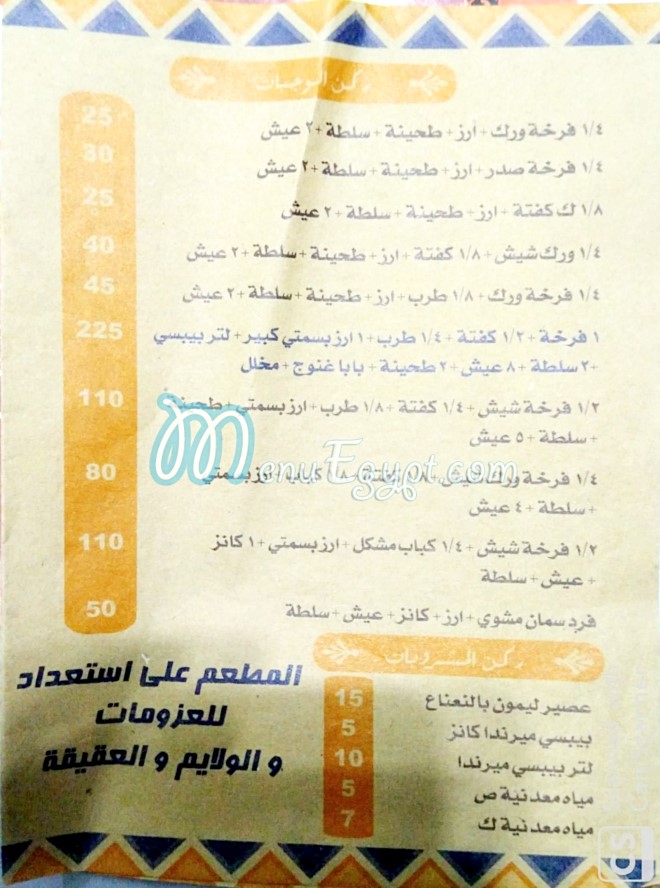 ركن الوجبات
١/٤ فرخة ورك + ارز + طحينة + سلطة + ٢ عيش 25
١/٤ فرخة صدر + ارز + طحينة + سلطة + ٢ عيش 30
١/٨ ك كفتة + ارز + طحينة + سلطة + ٢ عيش 25
١/٤ ورك شيش + ١/٨ كفتة + ارز + طحينة + سلطة + ٢ عيش 40
١/٤ فرخة ورك + ١/٨ طرب + ارز + طحينة + سلطة + ٢ عيش 45
١ فرخة + ١/٢ كفتة + ١/٤ طرب + ١ ارز بسمتي كبير + لتر بيبسي 225
+ ٢ سلطة + ٨ عيش + ٢ طحينة + بابا غنوج + مخلل
١/٢ فرخة شيش + ١/٤ كفتة + ١/٨ طرب + ارز بسمتي + طحينة 110
+ سلطة + ٥ عيش
MenuEgypt.com
١/٤ فرخة ورك شيش + ١/٨ كفتة + ١/٨ كباب + ارز بسمتي 80
+ سلطة + ٤ عيش
١/٢ فرخة شيش + ١/٤ كباب مشكل + ارز بسمتي + ١ كانز 110
+ عيش + سلطة
فرد سمان مشوي + ارز + كانز + عيش + سلطة 50
ركن المشروبات
عصير ليمون بالنعناع 15
بيبسي ميرندا كانز 5
لتر بيبسي ميرندا 10
مياه معدنية ص 5
مياه معدنية ك 7
المطعم على استعداد
للعزومات
و الولايم و العقيقة